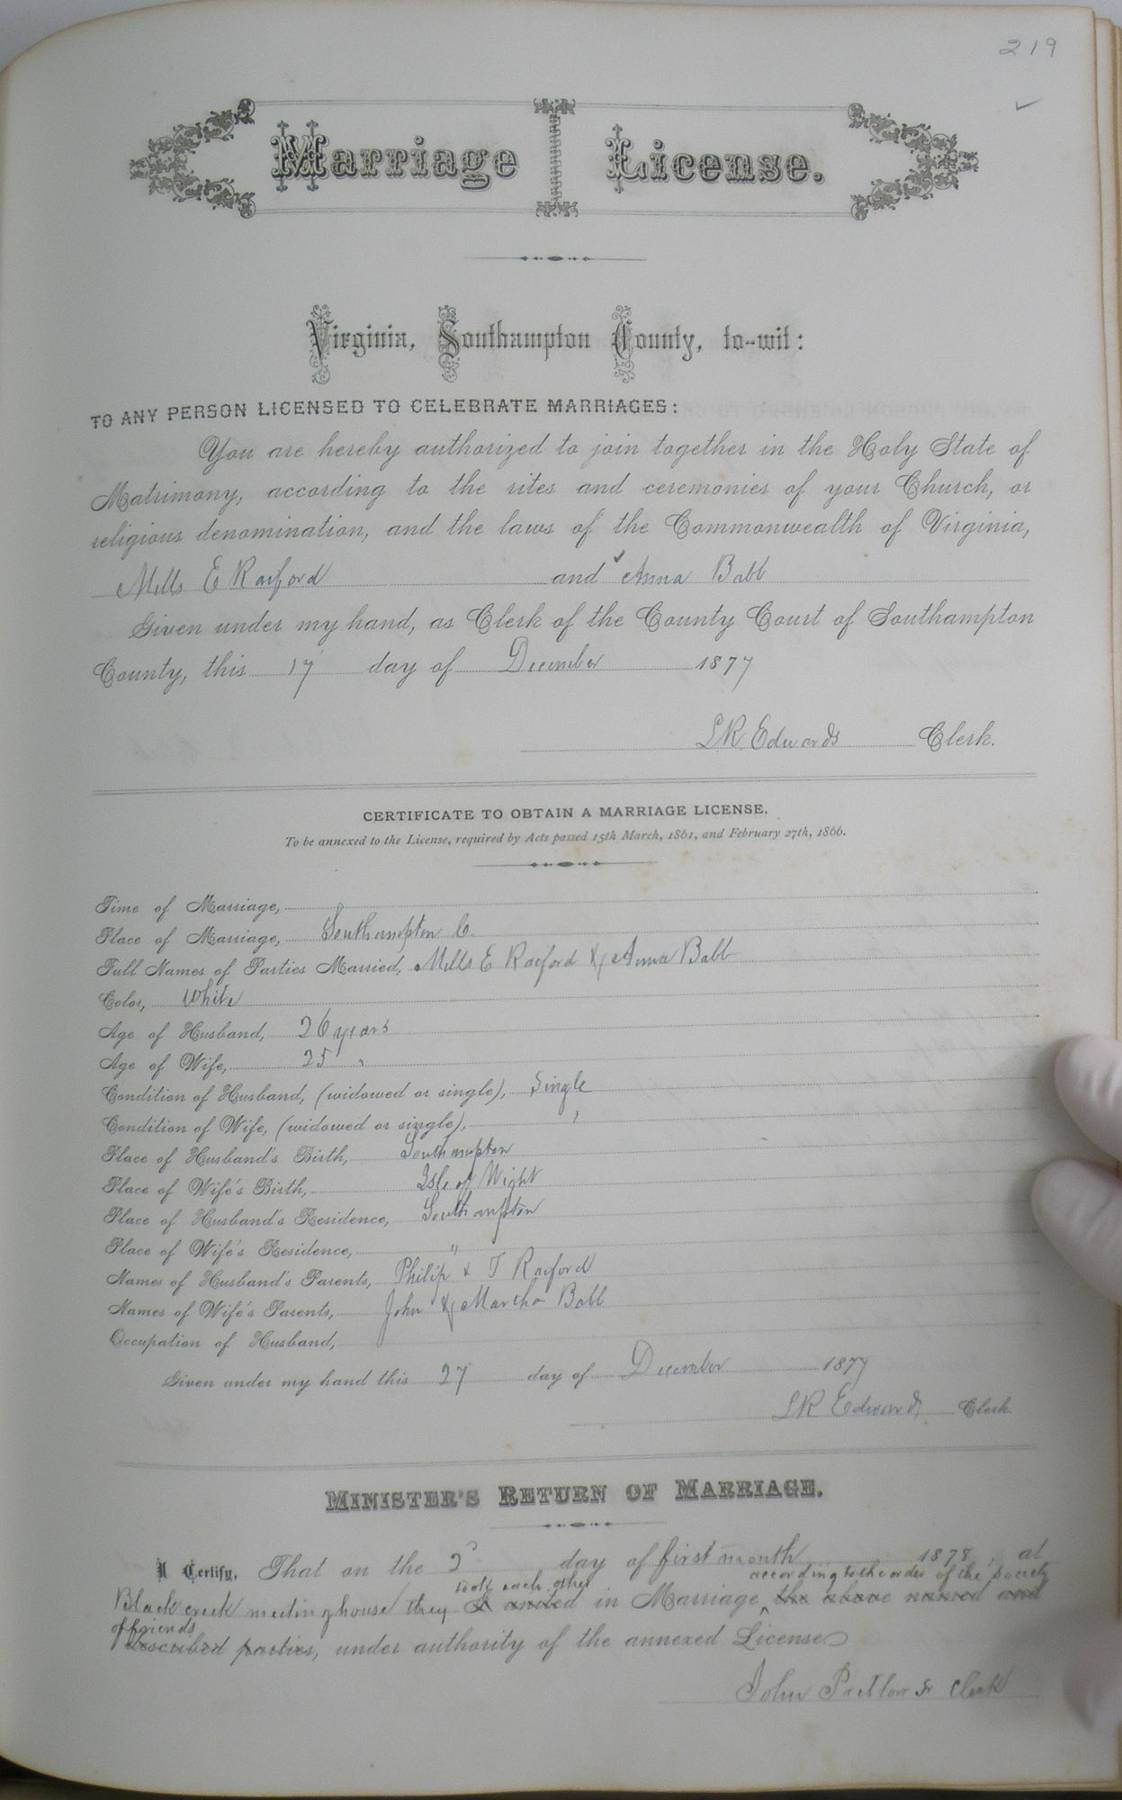 219
Marriage License.
Virginia, Southampton County, to-wit:
TO ANY PERSON LICENSED TO CELEBRATE MARRIAGES:
You are hereby authorized to join together in the Holy State of
Matrimony, according to the rites and ceremonies of your Church, or
religious denomination, and the laws of the Commonwealth of Virginia,
Mills E Raiford and Anna Babb
Given under my hand, as Clerk of the County Court of Southampton
County, this 17 day of December 1877
LR Edwards Clerk.
CERTIFICATE TO OBTAIN A MARRIAGE LICENSE.
To be annexed to the License, required by Acts passed 15th March, 1861, and February 27th, 1866.
Time of Marriage,
Place of Marriage, Southampton Co.
Full Names of Parties Married, Mills E Raiford & Anna Babb
Color, White
Age of Husband, 26 years
Age of Wife, 25 "
Condition of Husband, (widowed or single), Single
Condition of Wife, (widowed or single), "
Place of Husband's Birth, Southampton
Place of Wife's Birth, Isle of Wight
Place of Husband's Residence, Southampton
Place of Wife's Residence, "
Names of Husband's Parents, Philip & T Raiford
Names of Wife's Parents, John & Martha Babb
Occupation of Husband,
Given under my hand this 27 day of December 1877
LR Edwards Clerk.
MINISTER'S RETURN OF MARRIAGE.
I Certify, That on the day of first month 1878, at
took each other according to the order of the Society
Black creek meeting house they united in Marriage, the above named and
of friends
described parties, under authority of the annexed License
John Pretlow Jr Clerk